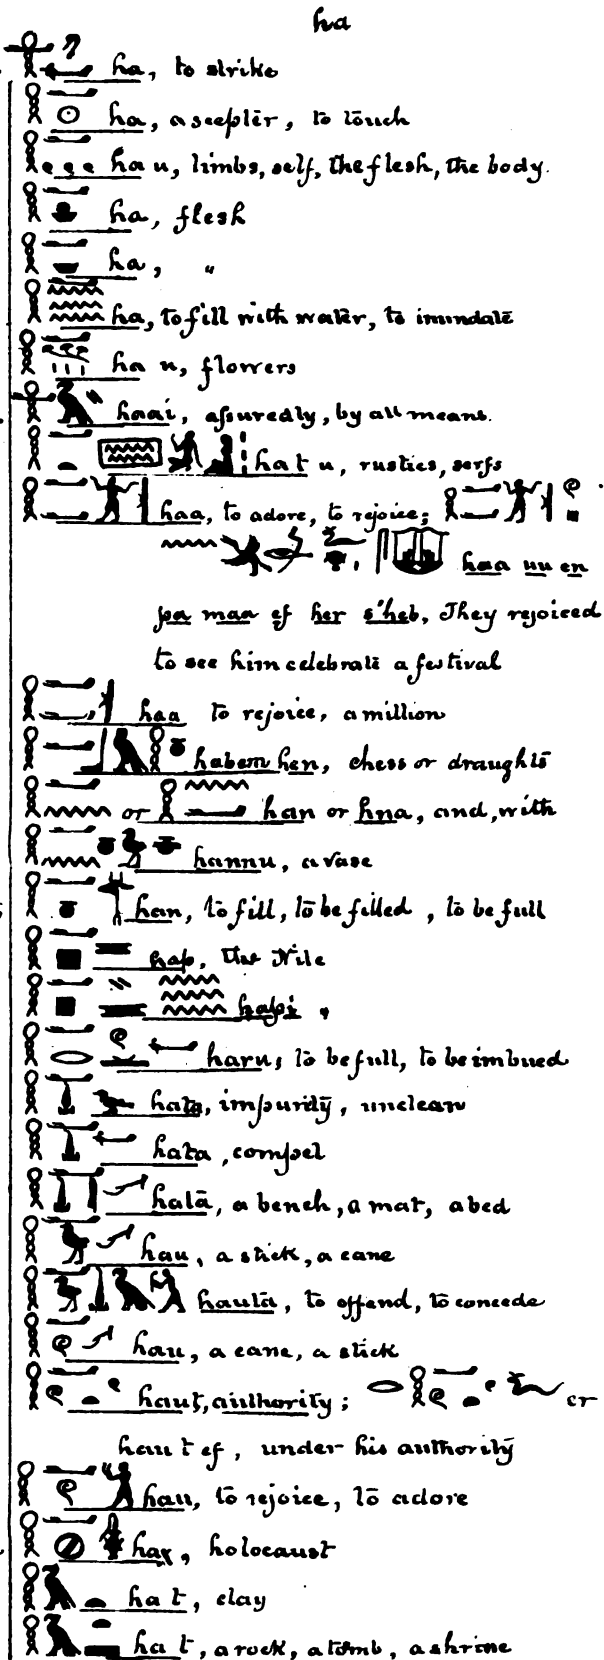 ha
ha, to strike
ha, a scepter, to touch
ha u, limbs, self, the flesh, the body.
ha, flesh
ha, "
ha, to fill with water, to inundate
ha u, flowers
haai, assuredly, by all means.
hat u, rustics, serfs
haa, to adore, to rejoice;
haa uu en
pa maa ef her s'heb, They rejoiced
to see him celebrate a festival
haa to rejoice, a million
habem hen, chess or draughts
or han or hna, and, with
hannu, a vase
han, to fill, to be filled, to be full
hap, the Nile
hapi "
haru, to be full, to be imbued
hata, impurity, unclean
hata, compel
hata, a bench, a mat, a bed
hau, a stick, a cane
hauta, to offend, to concede
hau, a cane, a stick
haut, authority; er
hau t ef, under his authority
hau, to rejoice, to adore
haχ, holocaust
ha t, clay
ha t, a rock, a tomb, a shrine